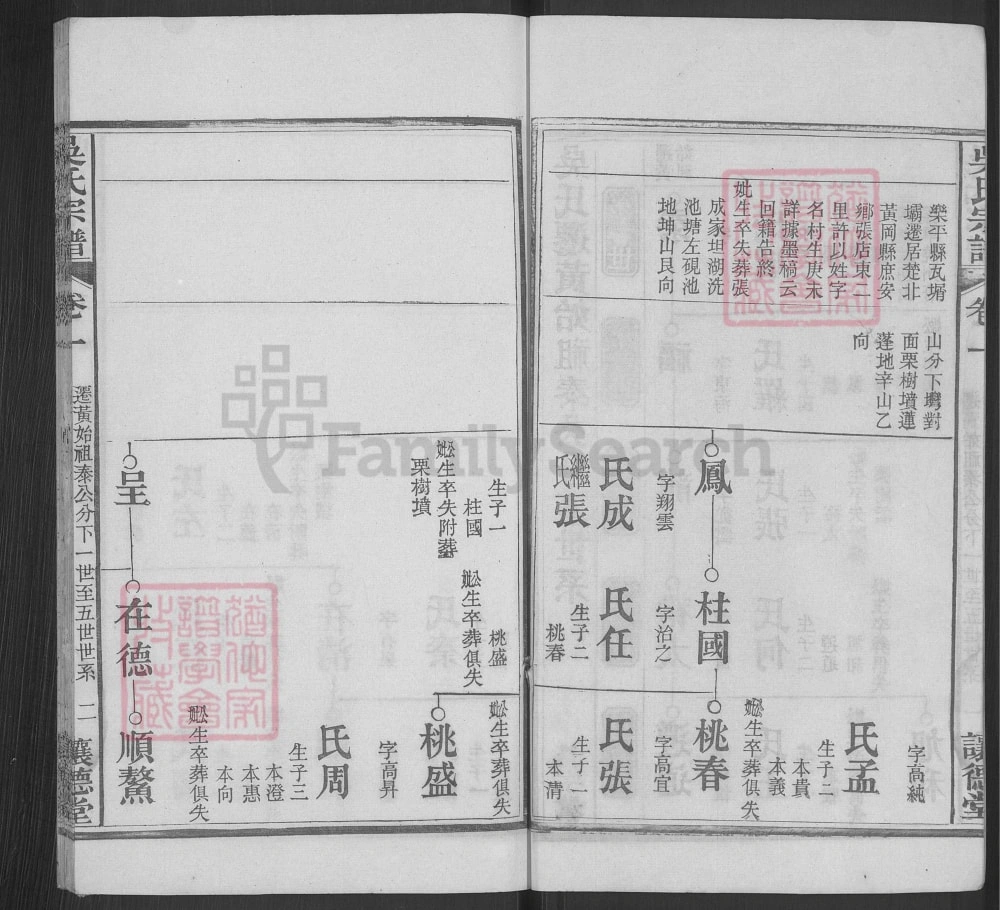 吳氏宗譜
卷一
讓德堂
樂平縣瓦塘
壩遷居楚北
黃岡縣庶安
鄉張店東二
里許以姓字
名村生庚未
詳據墨稿云
回籍告終
妣生卒失葬張
成家坦湖洗
池塘左硯池
地坤山艮向
山分下塆對
面栗樹墳蓮
蓬地辛山乙
向
鳳
字翔雲
氏成
繼氏張
生子一
柱國
妣公生卒失附葬
栗樹墳
柱國
字治之
氏任
生子二
桃春
桃盛
妣公生卒葬俱失
字高純
氏孟
生子二
本貴
本義
妣公生卒葬俱失
桃春
字高宜
氏張
生子一
本清
妣公生卒葬俱失
桃盛
字高昇
氏周
生子三
本澄
本惠
本向
妣公生卒葬俱失
呈
在德
順鰲
吳氏宗譜
卷一
遷黃始祖泰公分下一世至五世世系
二
讓德堂
FamilySearch